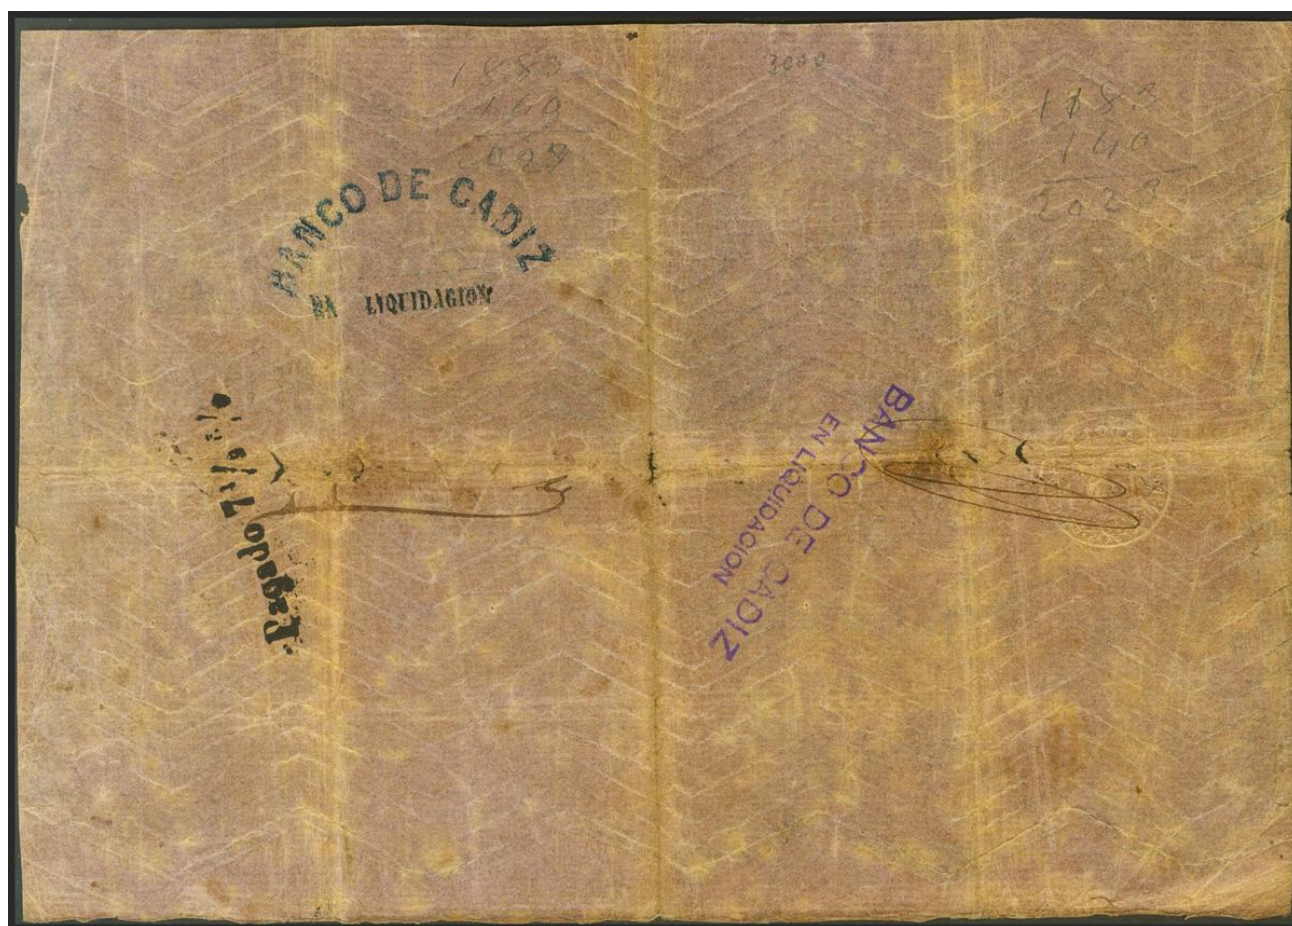 1883
140
3000
1183
140
2023
BANCO DE CADIZ
EN LIQUIDACION
Pagado 7 1/2 %
BANCO DE CADIZ
EN LIQUIDACION